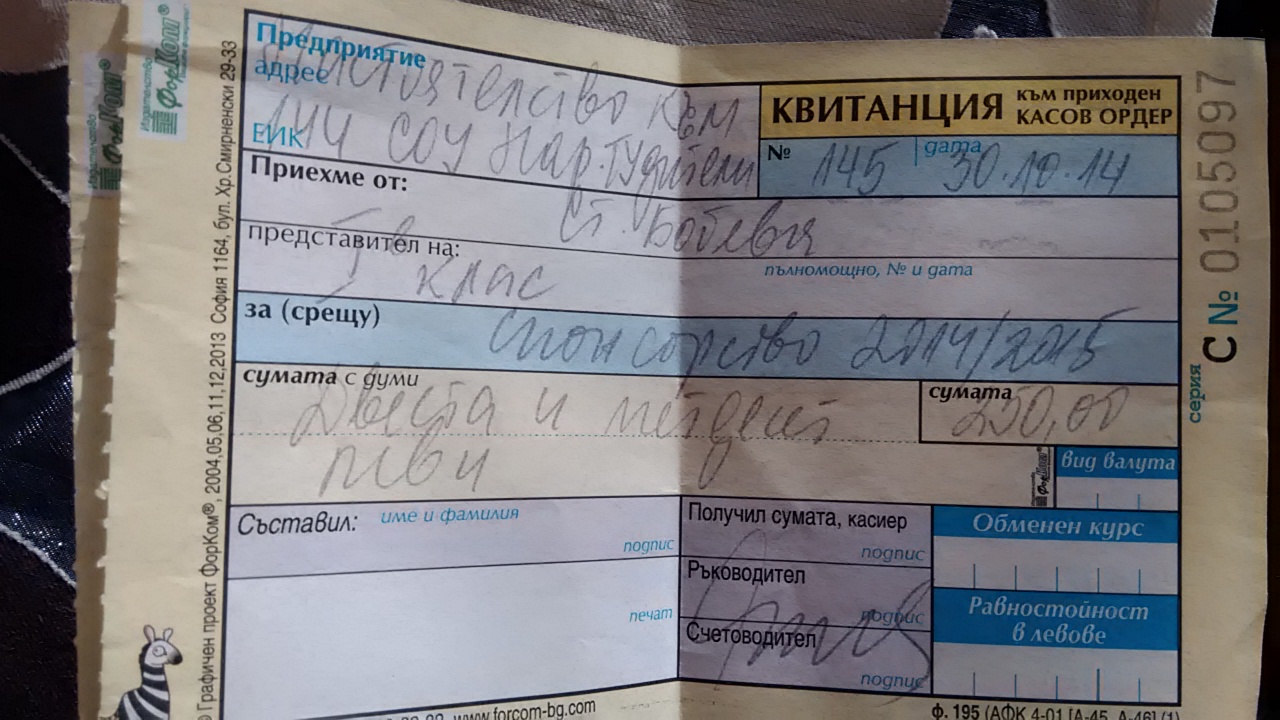 Предприятие
адрес
Настоятелство към
ЕИК
144 СОУ Нар. Будители
КВИТАНЦИЯ към приходен
КАСОВ ОРДЕР
№ 145 дата 30.10.14
Приехме от:
Ст. Ботева
представител на:
клас
пълномощно, № и дата
за (срещу)
Спонсорство 2014/2015
сумата с думи
Двеста и петдесет
лева
сумата
250,00
вид валута
Съставил: име и фамилия
подпис
печат
Получил сумата, касиер
подпис
Ръководител
подпис
Счетоводител
подпис
Обменен курс
Равностойност
в левове
серия С № 0105097
© Графичен проект ФорКом®, 2004,05,06,11,12,2013 София 1164, бул. Хр.Смирненски 29-33
Издателство
ФорКом®
www.forcom-bg.com
ф. 195 (АФК 4-01 [А-45, А-46] (1)